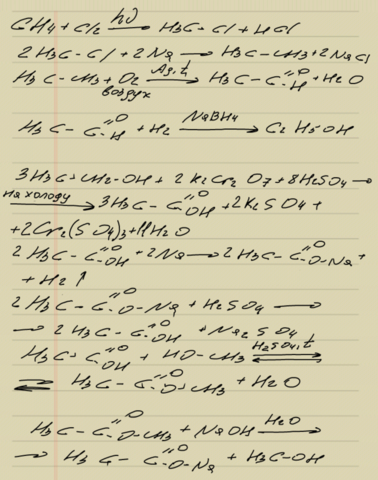 CH4 + Cl2 —hν→ H3C-Cl + HCl
2H3C-Cl + 2Na → H3C-CH3 + 2NaCl
H3C-CH3 + O2 —Ag, t→ H3C-C(=O)H + H2O
воздух
H3C-C(=O)H + H2 —NaBH4→ C2H5OH
3H3C+CH2-OH + 2K2Cr2O7 + 8H2SO4 →
на холоду → 3H3C-C(=O)OH + 2K2SO4 +
+2Cr2(SO4)3 + 11H2O
2H3C-C(=O)OH + 2Na → 2H3C-C(=O)O-Na +
+ H2 ↑
2H3C-C(=O)O-Na + H2SO4 →
→ 2H3C-C(=O)OH + Na2SO4
H3C-C(=O)OH + HO-CH3 —H2SO4, t⇌
⇌ H3C-C(=O)O-CH3 + H2O
H3C-C(=O)O-CH3 + NaOH —H2O→
→ H3C-C(=O)O-Na + H3C-OH